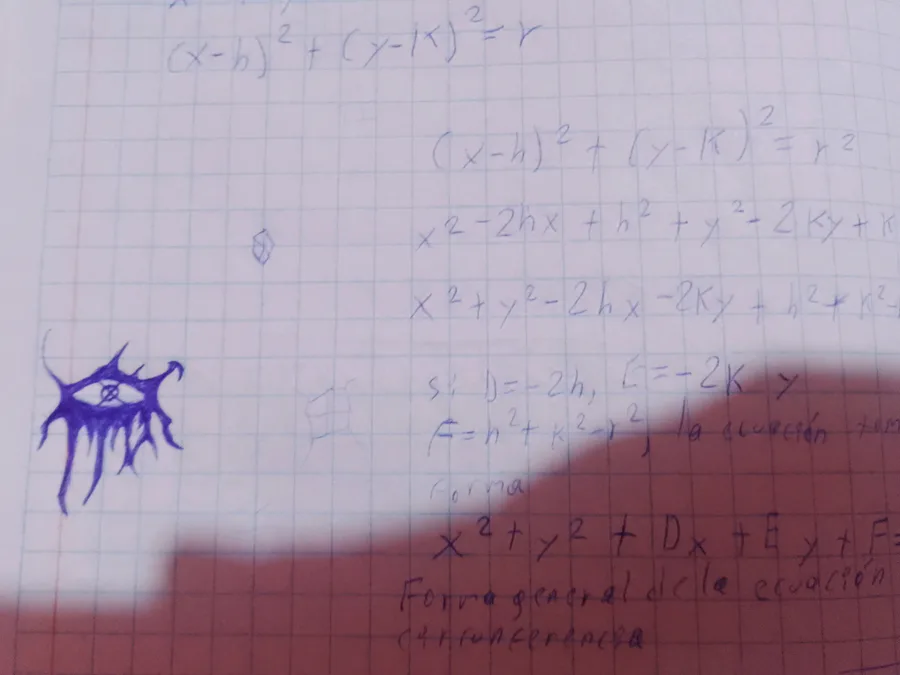 (x-h)² + (y-K)² = r
(x-h)² + (y-K)² = r²
x² - 2hx + h² + y² - 2Ky + K
x² + y² - 2hx - 2Ky + h² + K² -
si D = -2h, E = -2K y
F = h² + K² - r², la ecuación tom
forma
x² + y² + Dx + Ey + F =
Forma general de la ecuación